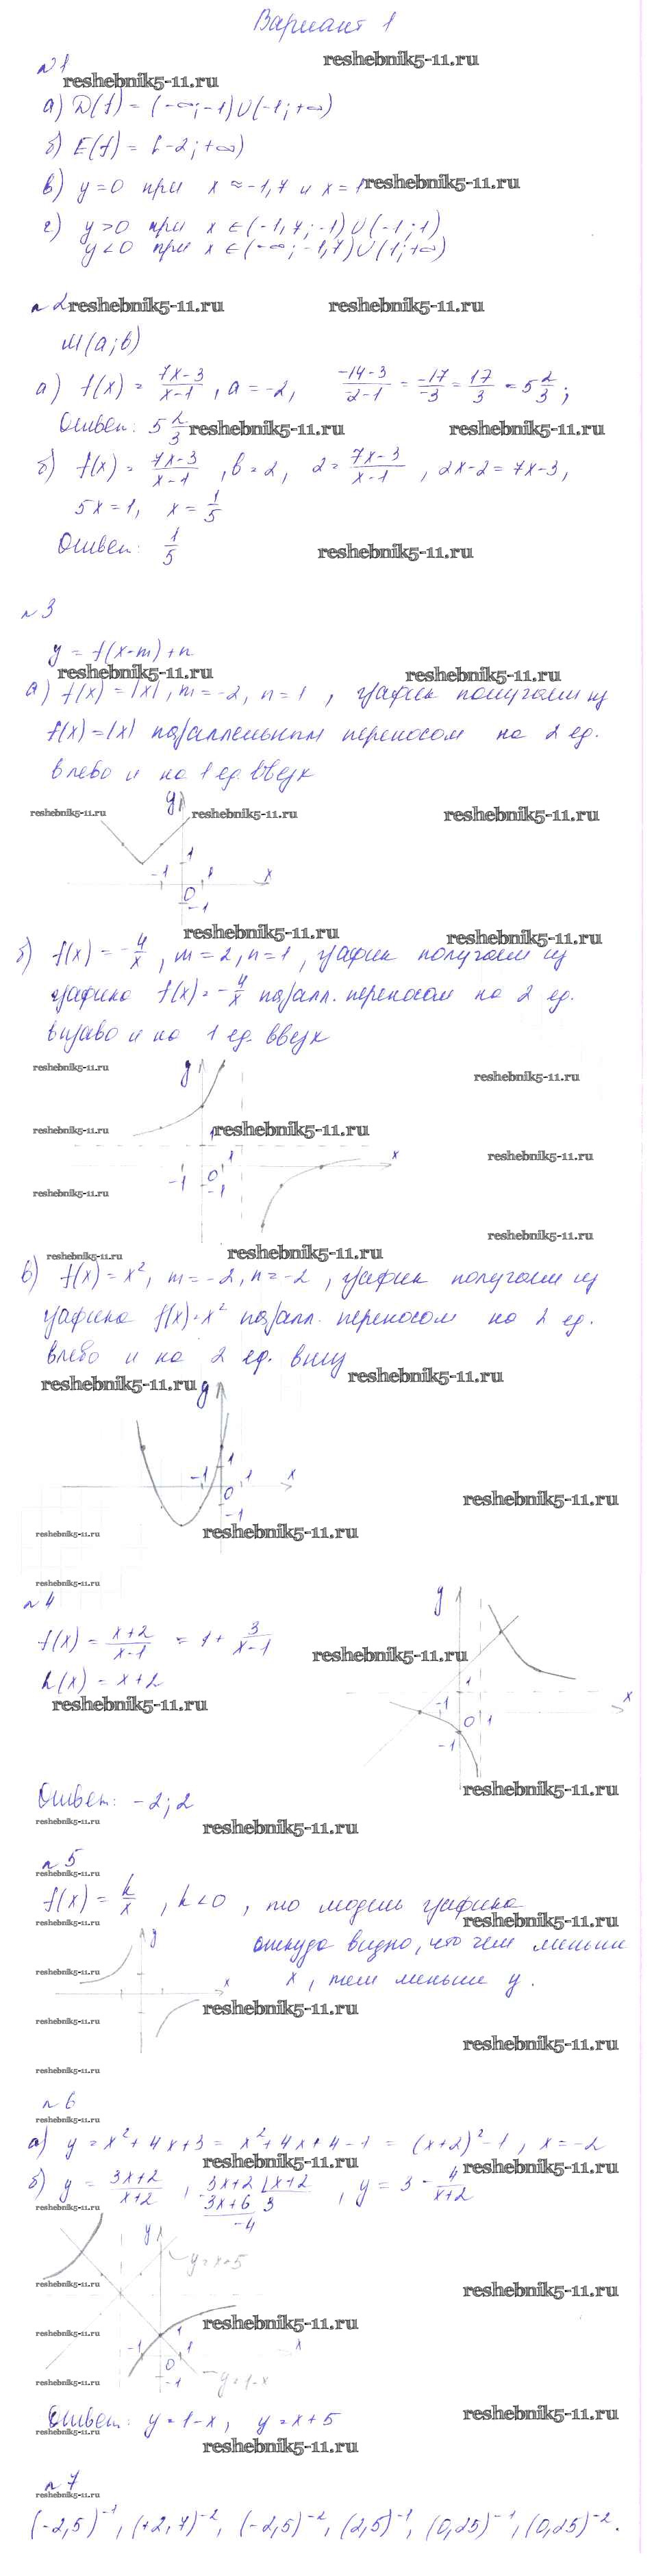 Вариант 1
№1
reshebnik5-11.ru
reshebnik5-11.ru
а) D(f) = (-∞; -1)∪(-1; +∞)
б) E(f) = [-2; +∞)
в) y=0 при x ≈ -1,7 и x = 1
reshebnik5-11.ru
г) y>0 при x ∈ (-1,7; -1)∪(-1; 1)
y<0 при x ∈ (-∞; -1,7)∪(1; +∞)
№2
reshebnik5-11.ru
reshebnik5-11.ru
M(a; b)
а) f(x) = (7x-3)/(x-1), a = -2, (-14-3)/(-2-1) = (-17)/(-3) = 17/3 = 5 2/3;
Ответ: 5 2/3
reshebnik5-11.ru
reshebnik5-11.ru
б) f(x) = (7x-3)/(x-1), b = 2, 2 = (7x-3)/(x-1), 2x-2 = 7x-3,
5x = 1, x = 1/5
Ответ: 1/5
reshebnik5-11.ru
№3
y = f(x-m)+n
reshebnik5-11.ru
reshebnik5-11.ru
а) f(x) = |x|, m = -2, n = 1, график получаем из
f(x) = |x| параллельным переносом на 2 ед.
влево и на 1 ед. вверх
y
reshebnik5-11.ru
reshebnik5-11.ru
reshebnik5-11.ru
1
-1 1 x
0
-1
reshebnik5-11.ru
reshebnik5-11.ru
б) f(x) = -4/x, m = 2, n = 1, график получаем из
графика f(x) = -4/x паралл. переносом на 2 ед.
вправо и на 1 ед. вверх
reshebnik5-11.ru
y
reshebnik5-11.ru
reshebnik5-11.ru
1
reshebnik5-11.ru
x
reshebnik5-11.ru
-1 0 1
-1
reshebnik5-11.ru
reshebnik5-11.ru
reshebnik5-11.ru
reshebnik5-11.ru
в) f(x) = x², m = -2, n = -2, график получаем из
графика f(x) = x² паралл. переносом на 2 ед.
влево и на 2 ед. вниз
reshebnik5-11.ru
y
reshebnik5-11.ru
1
-1 1 x
0
-1
reshebnik5-11.ru
reshebnik5-11.ru
reshebnik5-11.ru
reshebnik5-11.ru
№4
y
f(x) = (x+2)/(x-1) = 1 + 3/(x-1)
reshebnik5-11.ru
h(x) = x+2
reshebnik5-11.ru
1
x
-1 0 1
-1
reshebnik5-11.ru
Ответ: -2; 2
reshebnik5-11.ru
reshebnik5-11.ru
№5
reshebnik5-11.ru
f(x) = k/x, k<0, то модель графика
reshebnik5-11.ru
reshebnik5-11.ru
y
откуда видно, что чем меньше
reshebnik5-11.ru
x, тем меньше y.
x
reshebnik5-11.ru
reshebnik5-11.ru
reshebnik5-11.ru
reshebnik5-11.ru
№6
reshebnik5-11.ru
а) y = x²+4x+3 = x²+4x+4-1 = (x+2)²-1, x = -2
reshebnik5-11.ru
reshebnik5-11.ru
б) y = (3x+2)/(x+2), 3x+2 | x+2, y = 3 - 4/(x+2)
3x+6 3
-4
reshebnik5-11.ru
y
y=x+5
reshebnik5-11.ru
reshebnik5-11.ru
reshebnik5-11.ru
reshebnik5-11.ru
1
-1 0 1 x
-1
y=1-x
reshebnik5-11.ru
Ответ: y = 1-x, y = x+5
reshebnik5-11.ru
reshebnik5-11.ru
reshebnik5-11.ru
№7
reshebnik5-11.ru
(-2,5)⁻¹, (+2,7)⁻², (-2,5)⁻², (2,5)⁻¹, (0,25)⁻¹, (0,25)⁻².